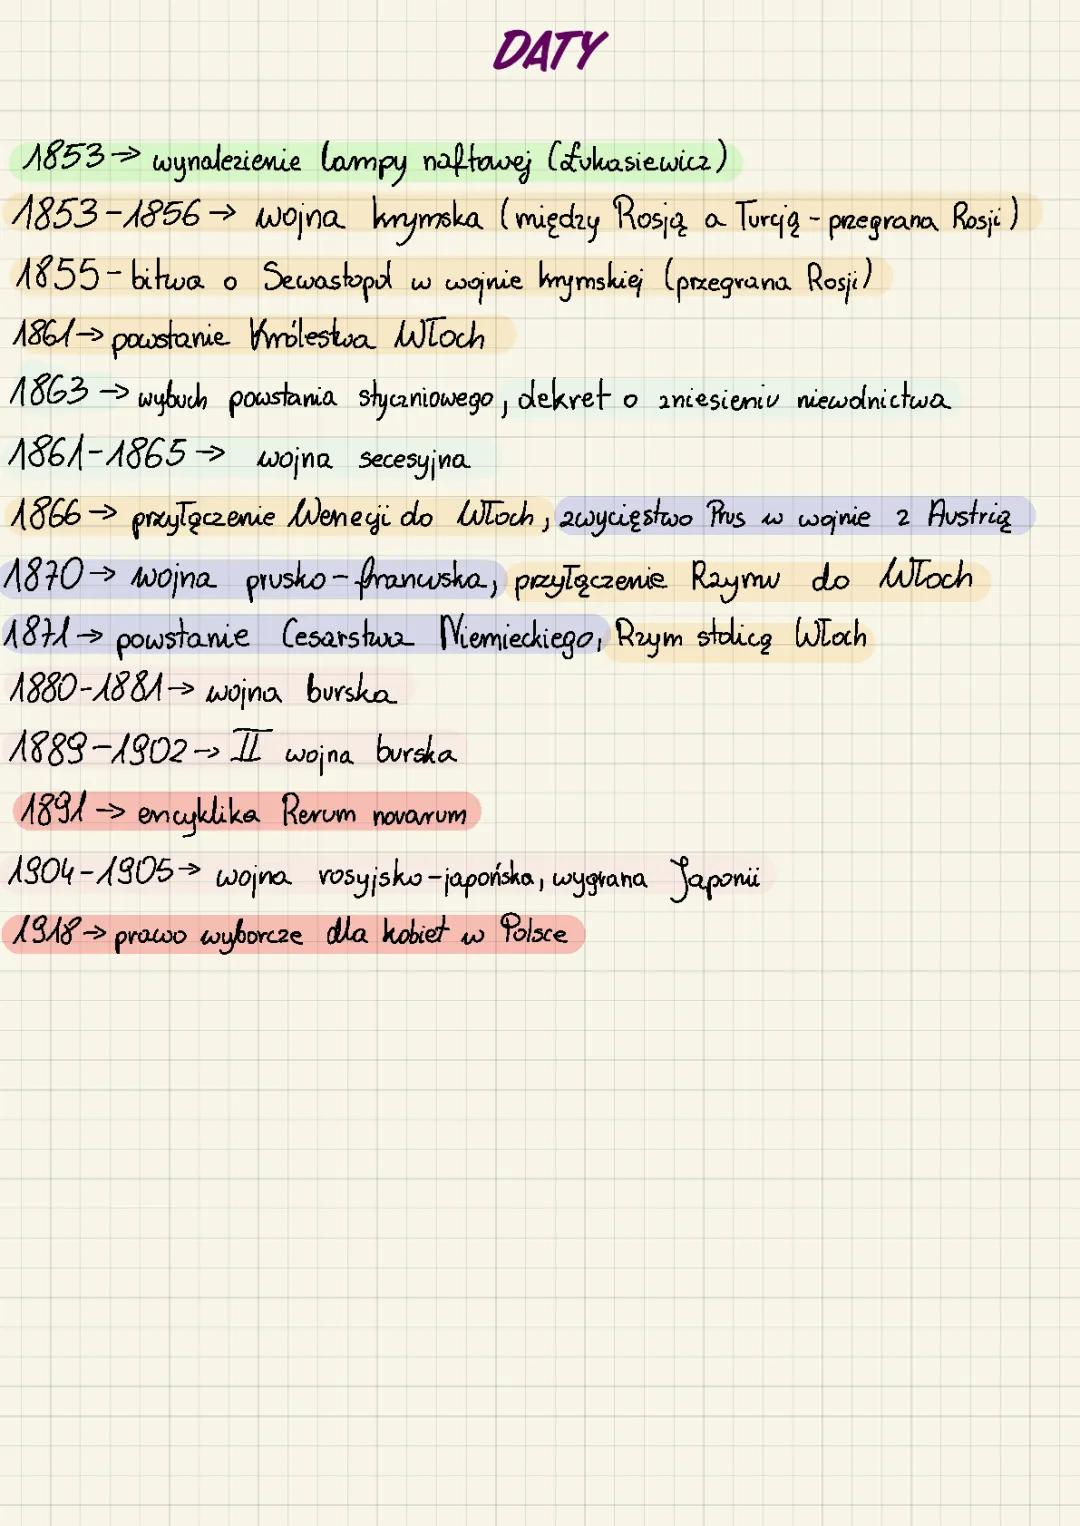 DATY
1853→ wynalezienie lampy naftowej (Łukasiewicz)
1853-1856→ wojna krymska (między Rosją a Turcją - przegrana Rosji)
1855-bitwa o Sewastopol w wojnie krymskiej (przegrana Rosji)
1861→ powstanie Królestwa Włoch
1863→ wybuch powstania styczniowego, dekret o zniesieniu niewolnictwa
1861-1865→ wojna secesyjna
1866→ przyłączenie Wenecji do Włoch, zwycięstwo Prus w wojnie z Austrią
1870→ wojna prusko-francuska, przyłączenie Rzymu do Włoch
1871→ powstanie Cesarstwa Niemieckiego, Rzym stolicą Włoch
1880-1881→ wojna burska
1889-1902→ II wojna burska
1891→ encyklika Rerum novarum
1904-1905→ wojna rosyjsko-japońska, wygrana Japonii
1918→ prawo wyborcze dla kobiet w Polsce